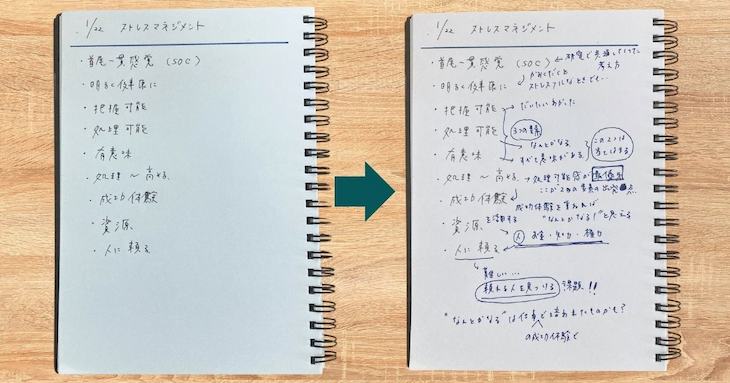 1/22 ストレスマネジメント
・首尾一貫感覚 (SOC)
・明るく健康に
・把握可能
・処理可能
・有意味
・処理〜高める
・成功体験
・資源
・人に頼る
1/22 ストレスマネジメント
・首尾一貫感覚 (SOC) ← 研究で共通していた
考え方
・明るく健康に
ストレスフルなときでも…
・把握可能 だいたいわかった
・処理可能 3つの要素
なんとかなる
・有意味 すべて意味がある
この2つは
・処理〜高める → 処理可能感が最優先
ここが2つの要素の出発点
・成功体験
成功体験を重ねれば
・資源 を活用する "なんとかなる!"と思える
人 お金・知力・権力
・人に頼る
難しい…
頼れる人を見つける 課題!!
"なんとかなる"は仕事で培われたものかも?
の成功体験で